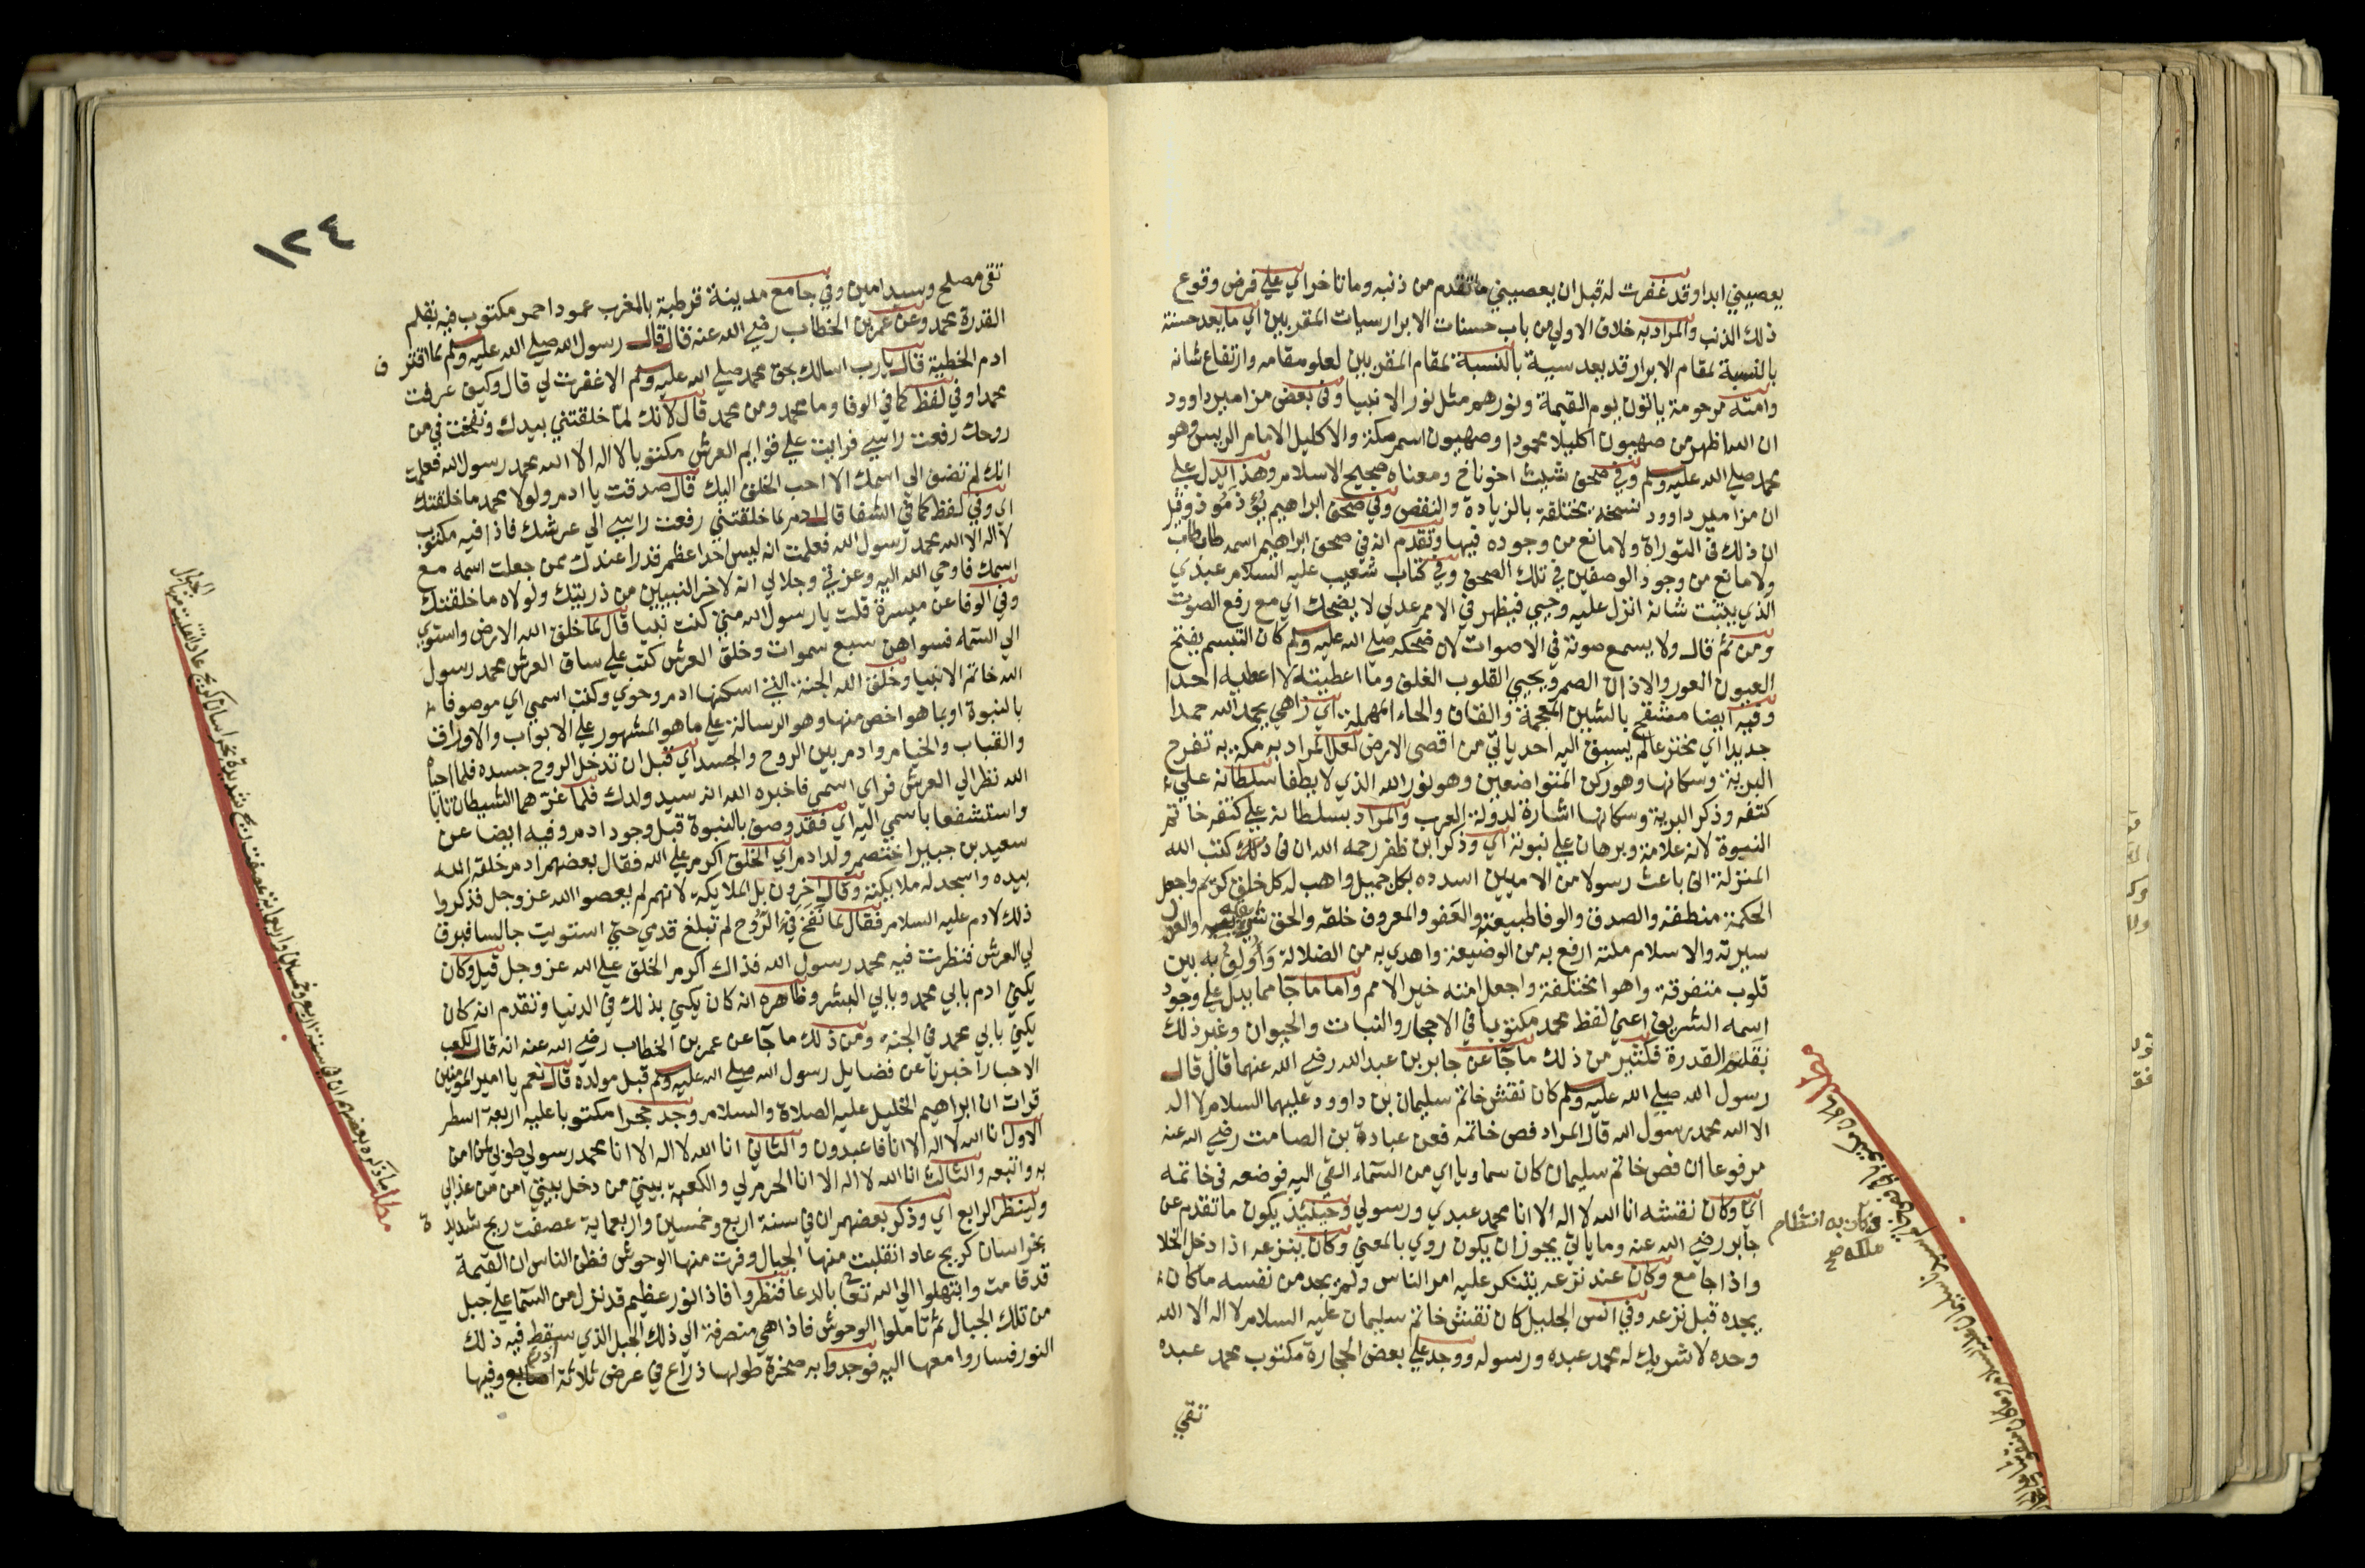 يعصيني ابدا وقد غفرت له قبل ان يعصيني ما تقدم من ذنبه وما تاخر اي علي فرض وقوع
ذلك الذنب والمراد به خلاف الاولي من باب حسنات الابرار سيات المقربين اي ما يعد حسنة
بالنسبة لمقام الابرار قد يعد سيية بالنسبة لمقام المقربين لعلو مقامه وارتفاع شانه
وامته مرحومة ياتون يوم القيمة ونورهم مثل نور الانبيا وفي بعض مزامير داوود
ان الله اظهر من صهيون اكليلا محمودا وصهيون اسم مكة والاكليل الامام الرييس وهو
محمد صلي الله عليه وسلم وفي صحف شيث اخوناخ ومعناه صحيح الاسلام وهذا يدل علي
ان مزامير داوود نسخه مختلفة بالزيادة والنقص وفي صحف ابراهيم يؤذ موذ وقيل
ان ذلك في التوراة ولا مانع من وجوده فيها وتقدم انه في صحف ابراهيم اسمه طاب طاب
ولا مانع من وجود الوصفين في تلك الصحف وفي كتاب شعيب عليه السلام عبدي
الذي يثبت شانه انزل عليه وحيي فيظهر في الامم عدلي لا يضحك اي مع رفع الصوت
ومن ثم قال ولا يسمع صوته في الاصوات لان ضحكه صلي الله عليه وسلم كان التبسم يفتح
العيون العور والاذان الصم ويحيي القلوب الغلف وما اعطيته لا اعطيه احدا
وفيه ايضا مشقح بالشين المعجمة والقاف والحاء المهملة اي زاهي يحمد الله حمدا
جديدا اي مخترعا لم يسبق اليه احد ياتي من اقصي الارض لعل المراد به مكة به تفرح
البرية وسكانها وهو ركن المتواضعين وهو نور الله الذي لا يطفا سلطانه علي
كتفه وذكر البرية وسكانها اشارة لدولة العرب والمراد بسلطانه علي كتفه خاتم
النبوة لانه علامة وبرهان علي نبوته اي وذكر ابن ظفر رحمه الله ان في ذلك كتب الله
المنزلة اني باعث رسولا من الاميين اسدده بكل جميل واهب له كل خلق كريم واجعل
الحكمة منطقه والصدق والوفا طبيعته والعفو والمعروف خلقه والحق شريعته والعدل
سيرته والاسلام ملته ارفع به من الوضيعة واهدي به من الضلالة واولف به بين
قلوب متفرقة واهوا مختلفة واجعل امته خير الامم واما ما جا مما يدل علي وجود
اسمه الشريف اعني لفظ محمد مكتوبا في الاحجار والنبات والحيوان وغير ذلك
بقلم القدرة فكثير من ذلك ما جا عن جابر بن عبد الله رضي الله عنهما قال قال
رسول الله صلي الله عليه وسلم كان نقش خاتم سليمان بن داوود عليهما السلام لا اله
الا الله محمد رسول الله قال المراد فص خاتمه فعن عبادة بن الصامت رضي الله عنه
مرفوعا ان فص خاتم سليمان كان سماويا اي من السماء القي اليه فوضعه في خاتمه
اي وكان نقشه انا الله لا اله الا انا محمد عبدي ورسولي وحينيذ يكون ما تقدم عن
جابر رضي الله عنه وما ياتي يجوز ان يكون روي بالمعني وكان ينزعه اذا دخل الخلا
واذا جامع وكان عند نزعه يتنكر عليه امر الناس ولم يجد من نفسه ما كان
يجده قبل نزعه وفي انس الجليل كان نقش خاتم سليمان عليه السلام لا اله الا الله
وحده لا شريك له محمد عبده ورسوله ووجد علي بعض الحجارة مكتوب محمد عبده
تقي
فكان به انتظام
ملكه صح
١٢٤
تقي مصلح وسيد امين وفي جامع مدينة قرطبة بالمغرب عمود احمر مكتوب فيه بقلم
القدرة محمد وعن عمر بن الخطاب رضي الله عنه قال قال رسول الله صلي الله عليه وسلم لما اقتر ف
ادم الخطية قال يا رب اسالك بحق محمد صلي الله عليه وسلم الا غفرت لي قال وكيف عرفت
محمدا وفي لفظ كما في الوفا وما محمد ومن محمد قال لانك لما خلقتني بيدك ونفخت في من
روحك رفعت راسي فرايت علي قوايم العرش مكتوبا لا اله الا الله محمد رسول الله فعلمت
انك لم تضف الي اسمك الا احب الخلق اليك قال صدقت يا ادم ولولا محمد ما خلقتك
اي وفي لفظ كما في الشفا قال ادم لما خلقتني رفعت راسي الي عرشك فاذا فيه مكتوب
لا اله الا الله محمد رسول الله فعلمت انه ليس احدا اعظم قدرا عندك ممن جعلت اسمه مع
اسمك فاوحي الله اليه وعزتي وجلالي انه لاخر النبيين من ذريتك ولولاه ما خلقتك
وفي الوفا عن ميسرة قلت يا رسول الله متي كنت نبيا قال لما خلق الله الارض واستوي
الي السما فسواهن سبع سموات وخلق العرش كتب علي ساق العرش محمد رسول
الله خاتم الانبيا وخلق الله الجنة التي اسكنها ادم وحوي وكتب اسمي اي موصوفا
بالنبوة او بما هو اخص منها وهو الرسالة علي ما هو المشهور علي الابواب والاوراق
والقباب والخيام وادم بين الروح والجسد اي قبل ان تدخل الروح جسده فلما احياه
الله نظر الي العرش فراي اسمي فاخبره الله انه سيد ولدك فلما غرهما الشيطان تابا
واستشفعا باسمي اليه اي فقد وصف بالنبوة قبل وجود ادم وفيه ايضا عن
سعيد بن جبير اختصم ولد ادم اي الخلق اكرم علي الله فقال بعضهم ادم خلقه الله
بيده واسجد له ملايكته وقال اخرون بل الملايكة لانهم لم يعصوا الله عز وجل فذكروا
ذلك لادم عليه السلام فقال لما نفخ في الروح لم تبلغ قدمي حتي استويت جالسا فبرق
لي العرش فنظرت فيه محمد رسول الله فذاك اكرم الخلق علي الله عز وجل قيل وكان
يكني ادم بابي محمد وبابي البشر وظاهره انه كان يكني بذلك في الدنيا وتقدم انه كان
يكني بابي محمد في الجنة ومن ذلك ما جا عن عمر بن الخطاب رضي الله عنه انه قال لكعب
الاحبار اخبرنا عن فضايل رسول الله صلي الله عليه وسلم قبل مولده قال نعم يا امير المومنين
قرات ان ابراهيم الخليل عليه الصلاة والسلام وجد حجرا مكتوبا عليه اربعة اسطر
الاول انا الله لا اله الا انا فاعبدون والثاني انا الله لا اله الا انا محمد رسولي طوبي لمن امن
به واتبعه والثالث انا الله لا اله الا انا الحرم لي والكعبة بيتي من دخل بيتي امن من عذابي
ولينظر الرابع اي وذكر بعضهم ان في سنة اربع وخمسين واربعماية عصفت ريح شديد ة
بخراسان كريح عاد انقلبت منها الجبال وفرت منها الوحوش فظن الناس ان القيمة
قد قامت وابتهلوا الي الله تعالي بالدعا فنظروا فاذا نور عظيم قد نزل من السما علي جبل
من تلك الجبال ثم تاملوا الوحوش فاذا هي منصرفة الي ذلك الجبل الذي سقط فيه ذلك
النور فساروا معها اليه فوجدوا به صخرة طولها ذراع في عرض ثلاثة اصابع وفيها
مطلب ما ذكره بعضهم ان في سنة اربع وخمسين واربعماية عصفت ريح شديدة بخراسان كريح عاد انقلبت منها الجبال